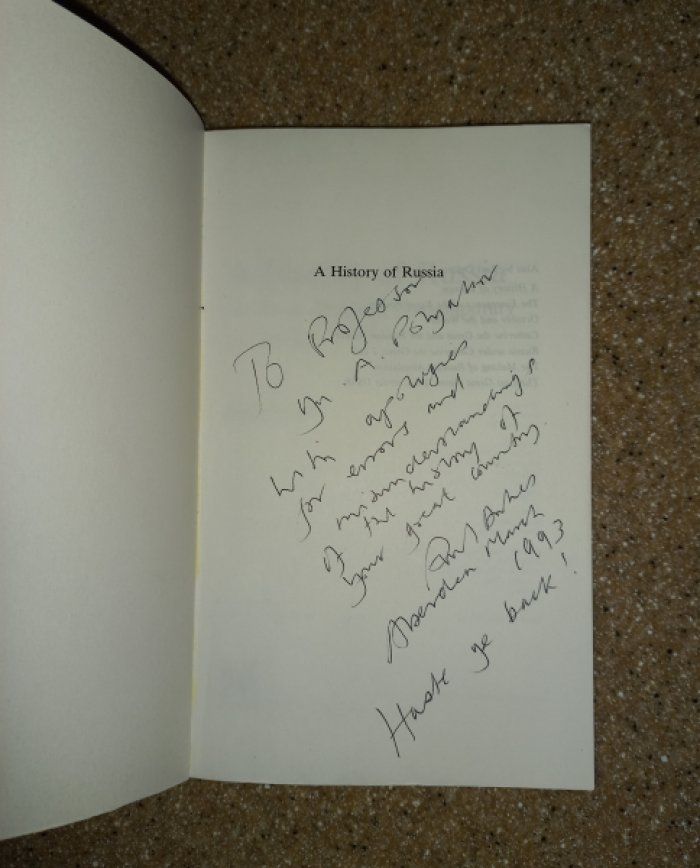 A History of Russia
To Professor
Yu A. Polyakov
with apologies
for errors and
misunderstandings
of the history of
your great country.
Paul Dukes
Aberdeen March
1993
Haste ye back!